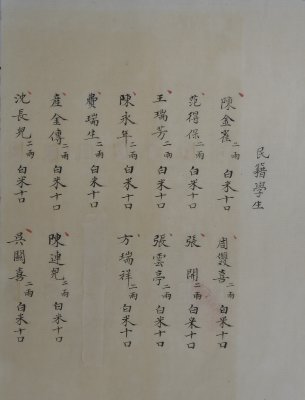 民籍學生
陳金雀二兩白米十口 周喜二兩白米十口
范得保二兩白米十口 張開二兩白米十口
王瑞芳二兩白米十口 張雲亭二兩白米十口
陳永年二兩白米十口 方瑞祥二兩白米十口
費瑞生二兩白米十口
產金傳二兩白米十口 陳連兒二兩白米十口
沈長兒二兩白米十口 吳關喜二兩白米十口